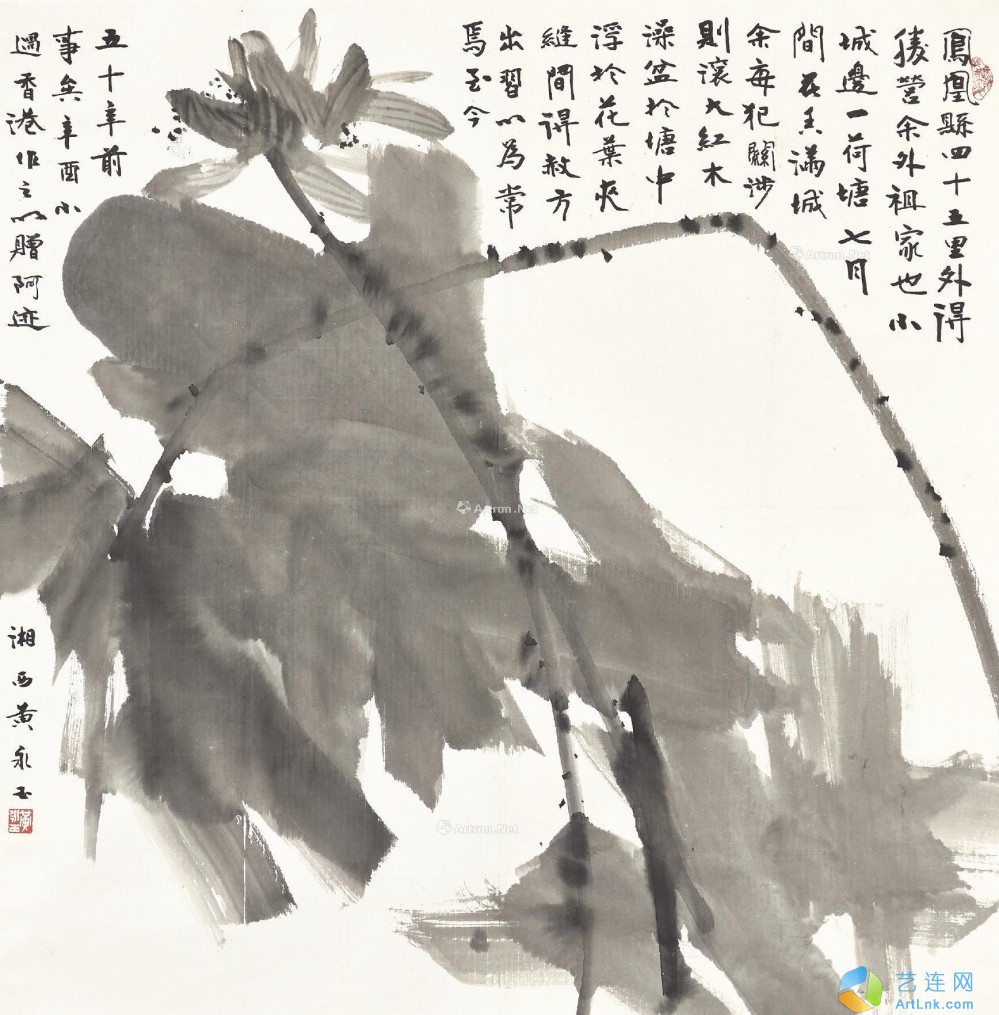 鳳凰縣四十五里外得
勝營余外祖家也小
城邊一荷塘七月
間花香滿城
余每犯闖涉
則滾大紅木
澡盆於塘中
浮於花葉夾
縫間得救方
出習以為常
焉至今
五十年前
事矣辛酉小
過香港作之以贈阿迹
湘西黄永玉
Artron.Net
Artron.Net
Artron.Net
艺连网
ArtLnk.com